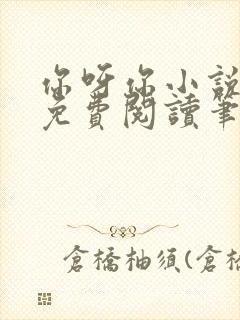 你呀你小說
免費閱讀筆
倉橋柚須(倉橋